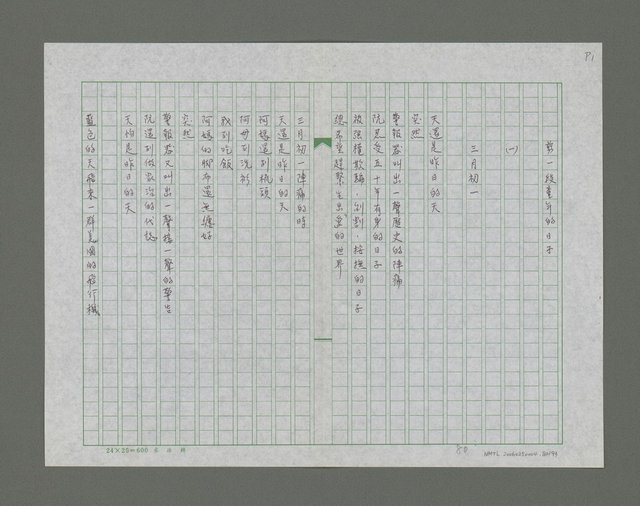 P1
剪一段童年的日子
(一)
三月初一
天還是昨日的天
突然
警報器叫出一聲歷史的陣痛
阮忍受五十年有男的日子
被強權欺騙、剝割、
的日子
總希望趕緊生出
的世界
三月初一陣痛的時
天還是昨日的天
阿爸還到梳頭
阿母到洗衫
我到吃飯
阿媽的腳布還未纏好
突然
警報器又叫出一聲接一聲的警告
阮還到做
的代誌
天怕是昨日的天
藍色的天飛來一群美國的飛行機
24×25=600
80
NMTL